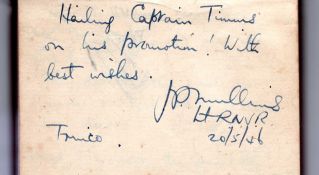 Hailing Captain Timms
on his promotion! With
best wishes.
JP Mullins
Lt RNVR
Trinco. 20/5/46